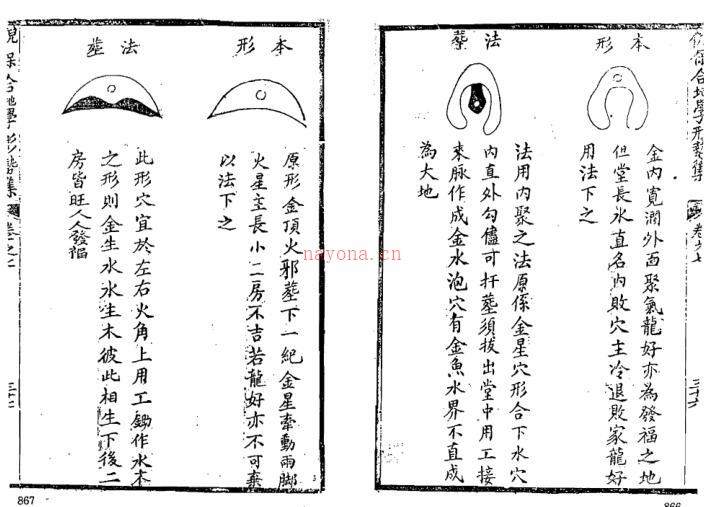 保合地學形勢集 卷之七 三十六
本形
金內寬濶外面聚氣龍好亦為發福之地
但堂長水直名內敗穴主冷退敗家龍好
用法下之
法葬
法用內聚之法原係金星穴形合下水穴
內直外勾儘可扦葬須拔出堂中用工接
來脉作成金水泡穴有金魚水界不直成
為大地
866
本形
原形金頂火邪葬下一紀金星牽動兩脚
火星主長小二房不吉若龍好亦不可棄
以法下之
法葬
此形穴宜於左右火角上用工鋤作水木
之形則金生水水生木彼此相生下後二
房皆旺人人發福
保合地學形勢集 卷之七
867
nayona.cn